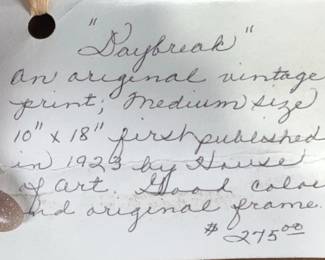 "Daybreak"
an original vintage
print; Medium size
10" x 18" first published
in 1923 by House
of Art. Good color
and original frame.
$275.00